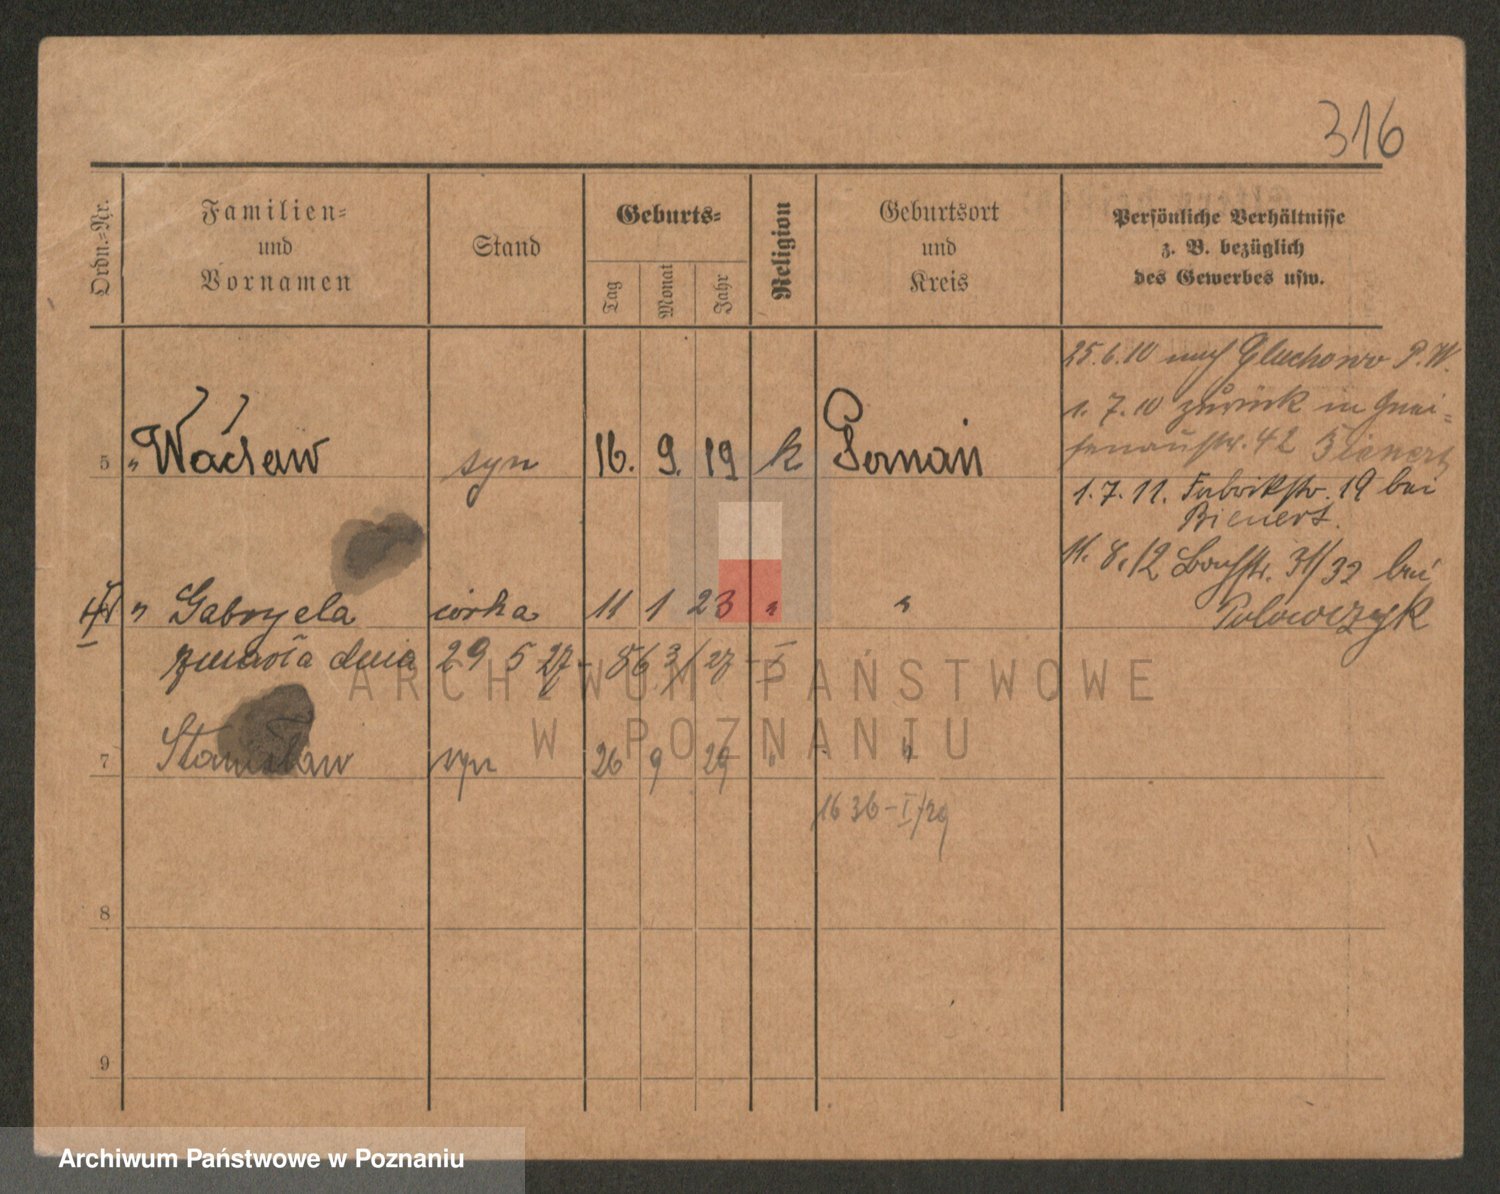 316
Ordn.=Nr.
Familien=
und
Vornamen
Stand
Geburts=
Tag
Monat
Jahr
Religion
Geburtsort
und
Kreis
Persönliche Verhältnisse
z. B. bezüglich
des Gewerbes usw.
25.6.10 nach Gluchowo P.W.
1.7.10 zurück in Gnei-
senaustr. 42 Bienert
1.7.11. Fabrikstr. 19 bei
Bienert.
11.8.12 Bachstr. 31/32 bei
Polowczyk
5 " Wacław syn 16. 9. 19 k Poznań
" Gabryela córka 11 1 23 " "
zmarła dnia 29 5 27
7 Stanisław syn 26 9 29 " "
1636-I/29
8
9
ARCHIWUM PAŃSTWOWE
W POZNANIU
Archiwum Państwowe w Poznaniu